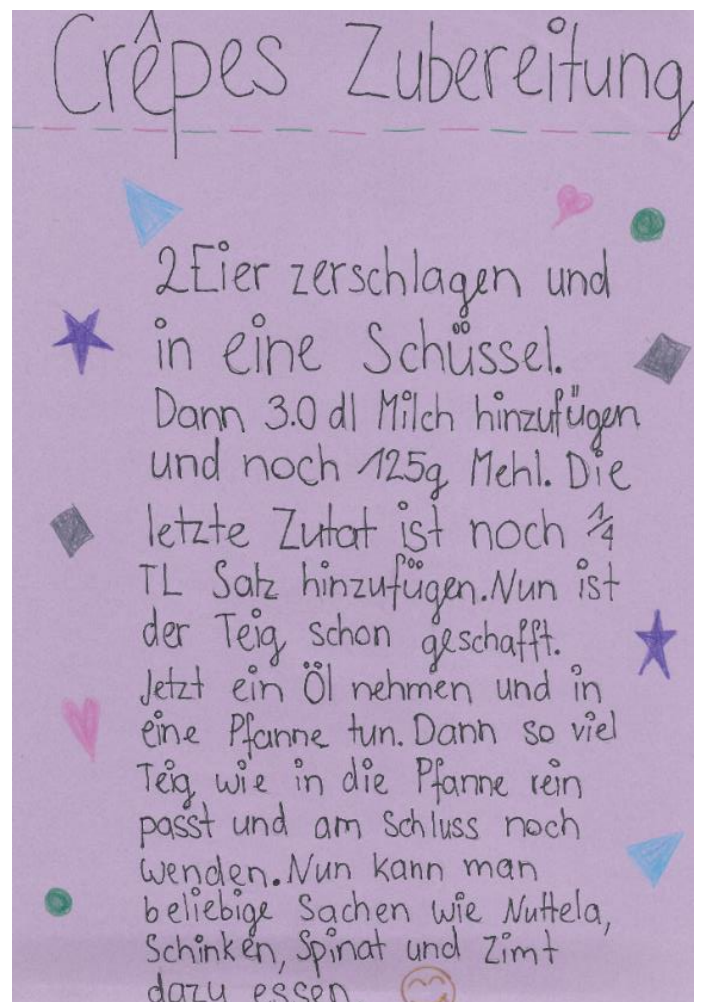 Crêpes Zubereitung
2 Eier zerschlagen und
in eine Schüssel.
Dann 3.0 dl Milch hinzufügen
und noch 125g Mehl. Die
letzte Zutat ist noch 1/4
TL Salz hinzufügen. Nun ist
der Teig schon geschafft.
Jetzt ein Öl nehmen und in
eine Pfanne tun. Dann so viel
Teig wie in die Pfanne rein
passt und am Schluss noch
wenden. Nun kann man
beliebige Sachen wie Nuttela,
Schinken, Spinat und Zimt
dazu essen